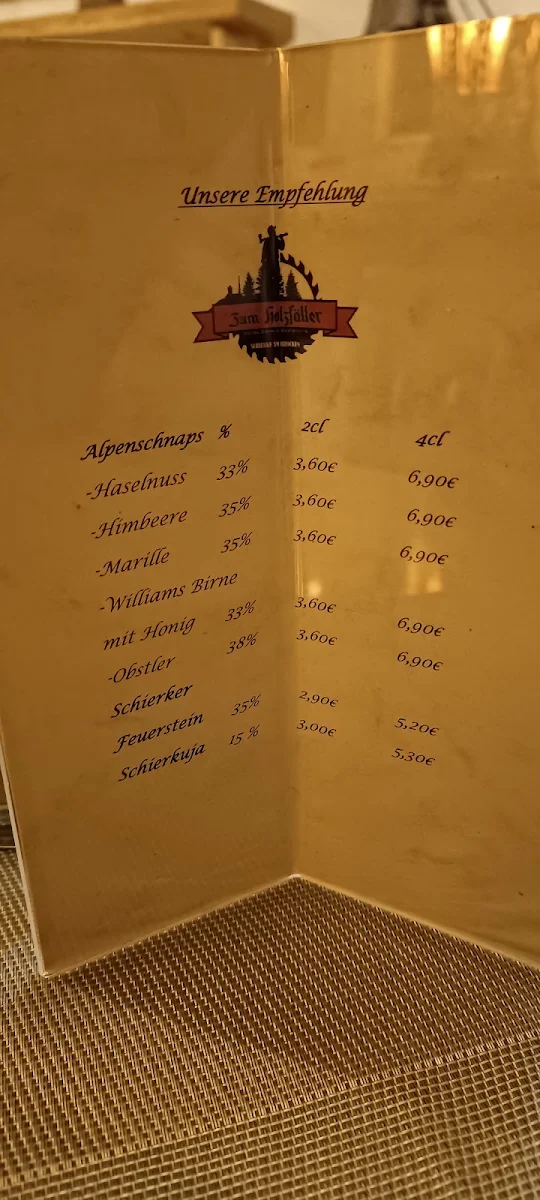 Unsere Empfehlung
Zum Holzfäller
SCHIERKE AM BROCKEN
Alpenschnaps % 2cl 4cl
-Haselnuss 33% 3,60€ 6,90€
-Himbeere 35% 3,60€ 6,90€
-Marille 35% 3,60€ 6,90€
-Williams Birne
mit Honig 33% 3,60€ 6,90€
-Obstler 38% 3,60€ 6,90€
Schierker
Feuerstein 35% 2,90€ 5,20€
Schierkuja 15 % 3,00€ 5,30€